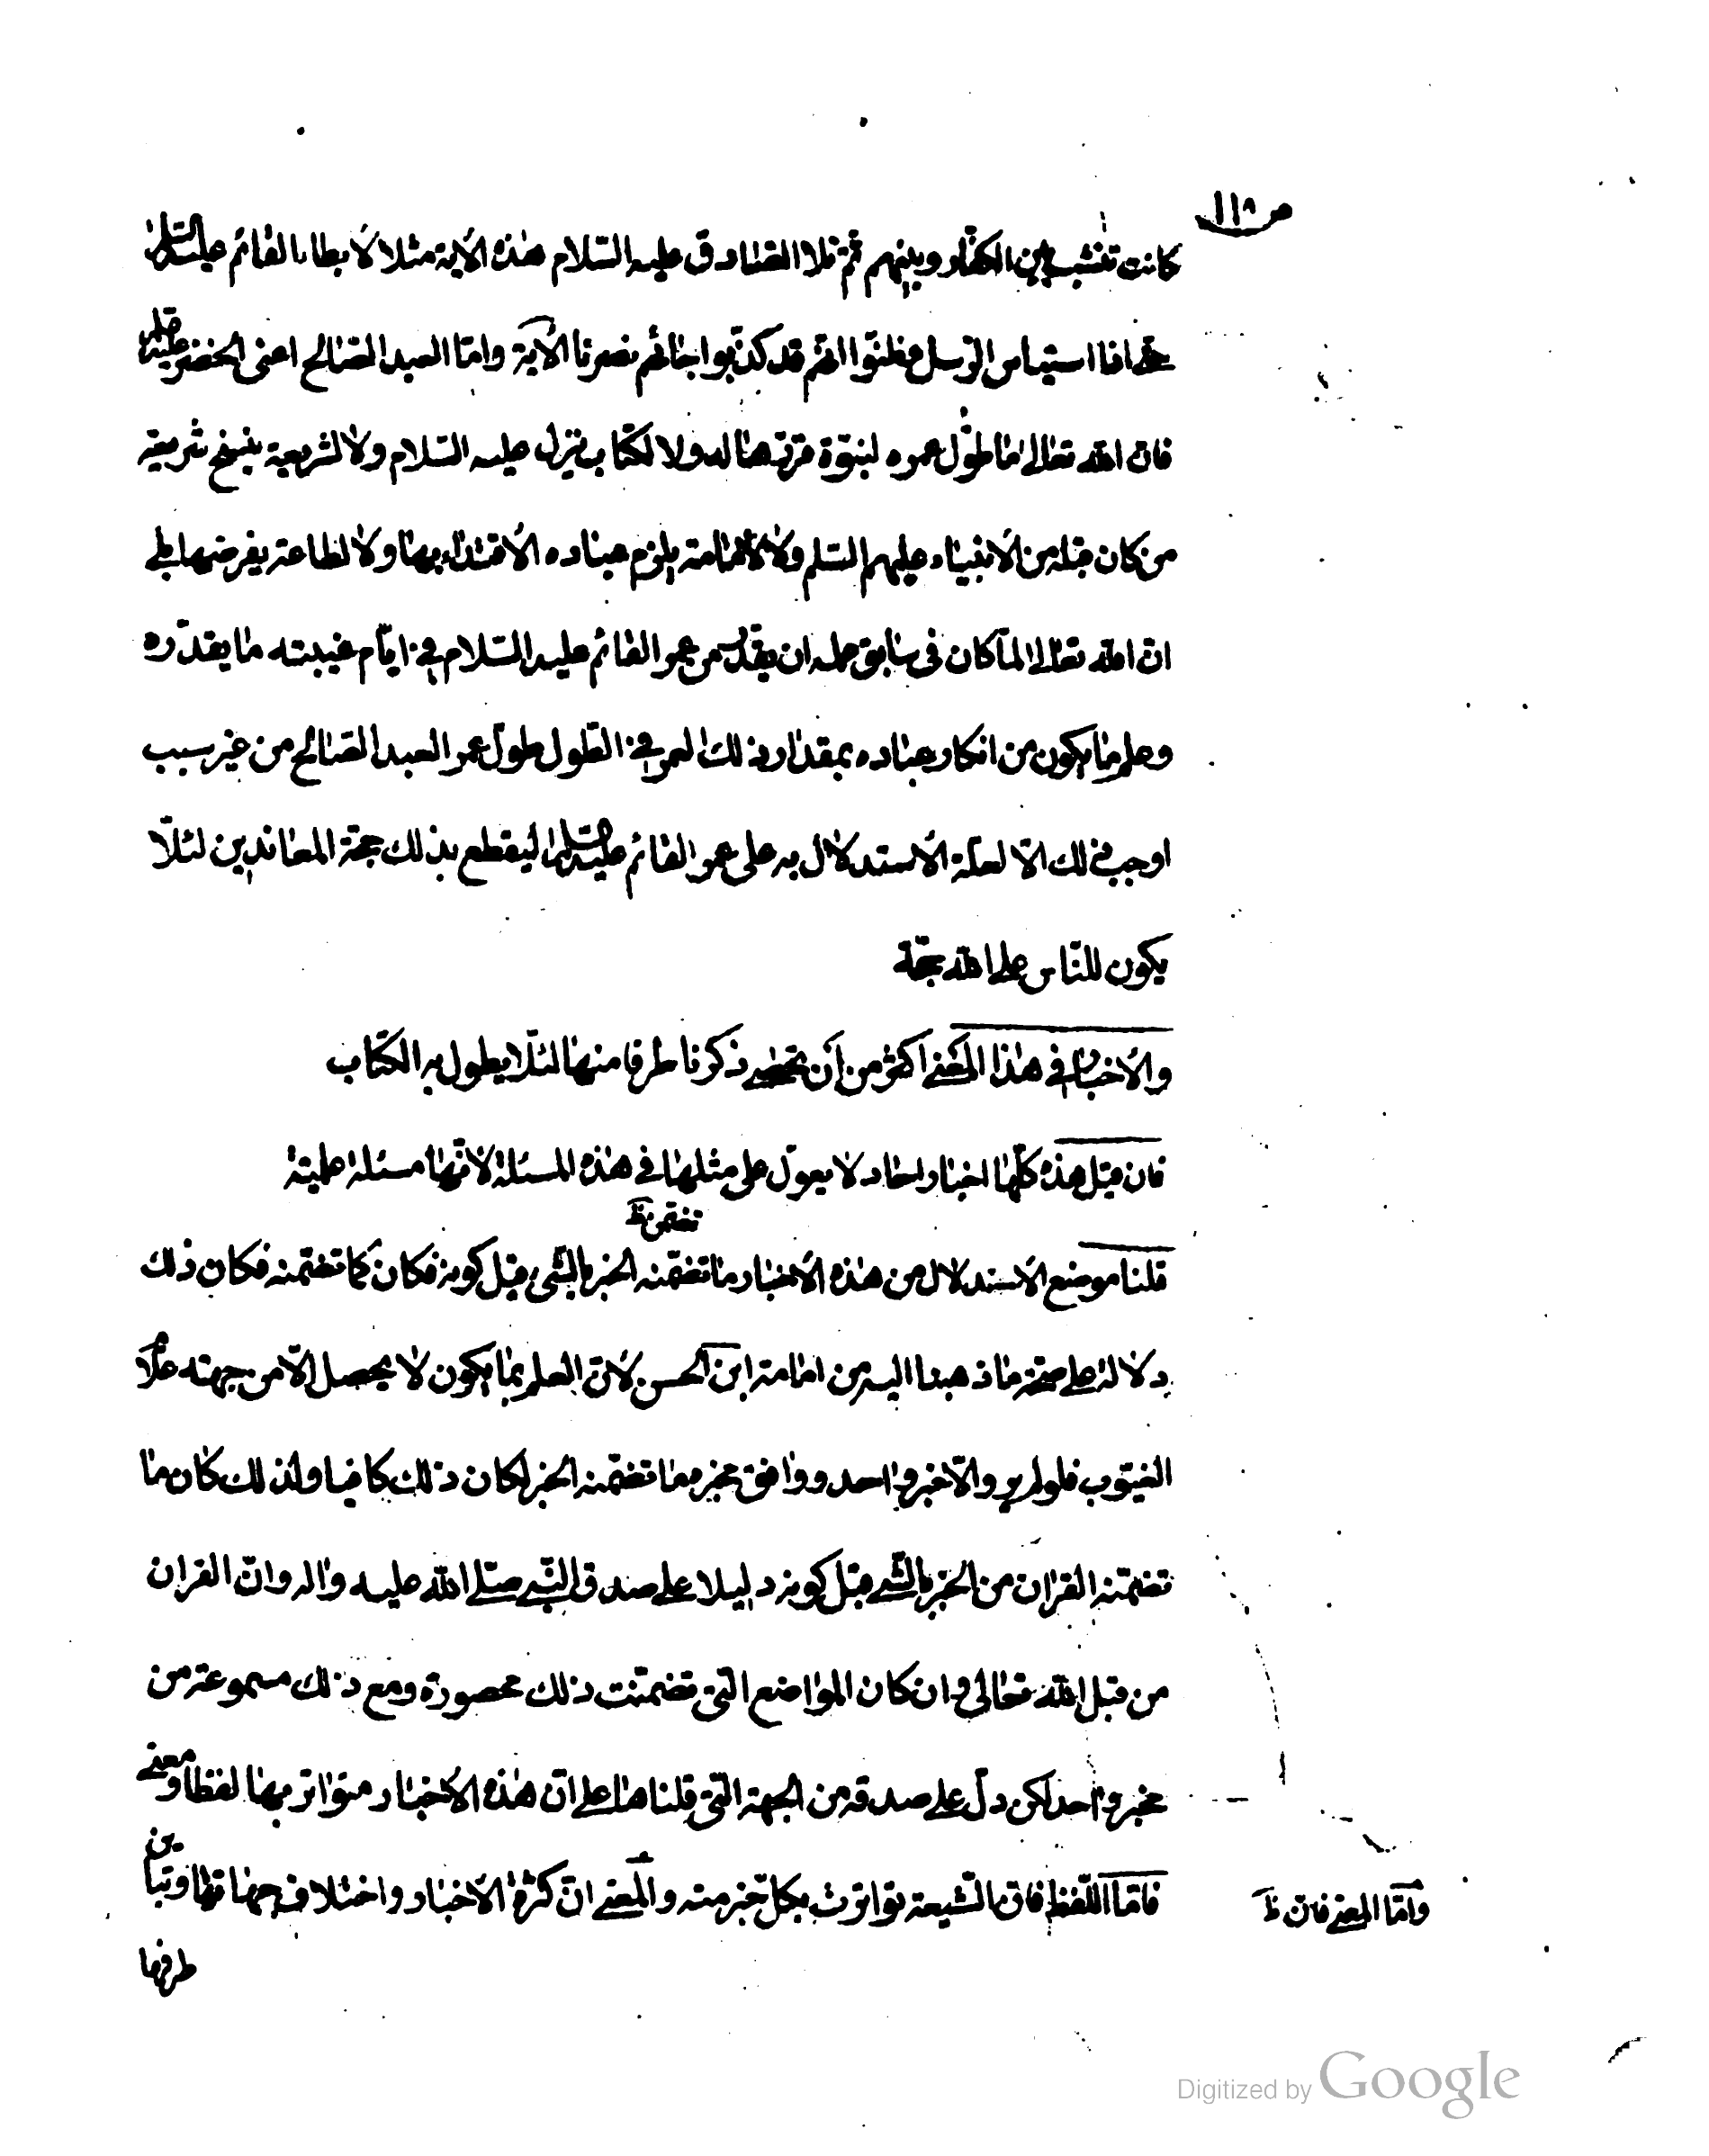 ص ١١٨
كانت تنشب بين الكفار وبينهم ثم تلا الصادق عليه السلام هذه الآية مثلا لابطاء القائم عليه السلام
حتى اذا استيأس الرسل وظنوا انهم قد كذبوا جائهم نصرنا الآية واما العبد الصالح اعنى الخضر عليه
فان الله تعالى ما طول عمره لنبوة قررها له ولا لكتاب نزل عليه السلام ولا لشريعة ينسخ شريعة
من كان قبله من الانبياء عليهم السلم ولا لامامة يلزم عباده الاقتداء بها ولا لطاعة يفرضها بلى
ان الله تعالى لما كان فى سابق علمه ان يقدر من عمر القائم عليه السلام فى ايام غيبته ما يقدره
وعلم ما يكون من انكار عباده بمقدار ذلك العمر فى الطول طول عمر العبد الصالح من غير سبب
اوجب ذلك الا لعلة الاستدلال به على عمر القائم عليه السلام ليقطع بذلك حجة المعاندين لئلا
يكون للناس على الله حجة
والاخبار فى هذا المعنى اكثر من ان تحصى ذكرنا طرفا منها لئلا يطول به الكتاب
فان قيل هذه كلها اخبار احاد لا يعول على مثلها فى هذه المسئلة لانها مسئلة علمية
تضمن ظ
قلنا موضع الاستدلال من هذه الاخبار ما تضمنه الخبر بالشىء قبل كونه فكان كما تضمنه فكان ذلك
دلالة على صحة ما ذهبنا اليه من امامة ابن الحسن لان العلم بما يكون لا يحصل الا من جهة علام
الغيوب فلو لم يرو الا خبر واحد ووافق مخبره ما تضمنه الخبر لكان ذلك كافيا ولذلك كان ما
تضمنه القران من الخبر بالشىء قبل كونه دليلا على صدق النبى صلى الله عليه واله وان القران
من قبل الله تعالى وان كان المواضع التى تضمنت ذلك محصورة ومع ذلك مسموعة من
مخبر واحد لكن دل على صدقه من الجهة التى قلناها على ان هذه الاخبار متواتر بها لفظا ومعنى
فاما اللفظ فان الشيعة تواترت بكل خبر منه والمعنى ان كثرة الاخبار واختلاف جهاتها وتباين
واما المعنى فان ظ
طرقها
Digitized by Google